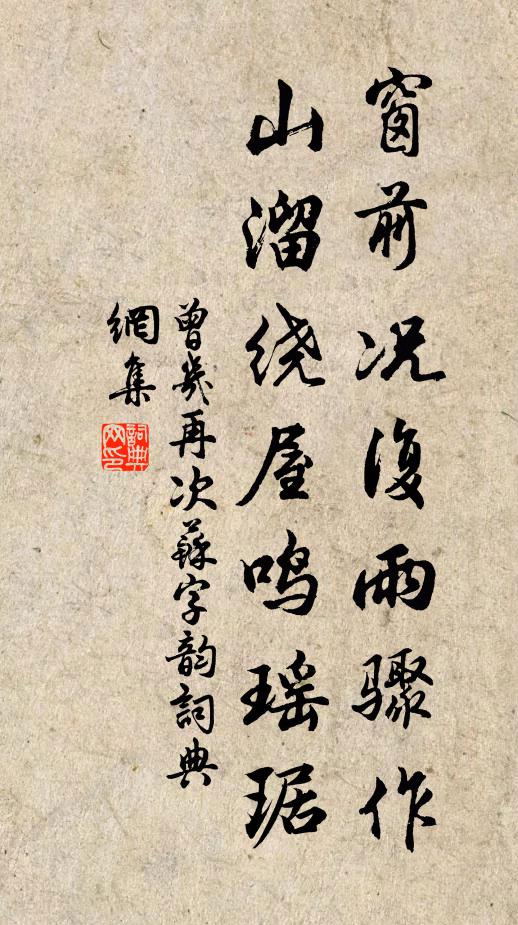 窗前况復雨驟作
山溜绕屋鸣瑶琚
曾幾再次蘇字韵詞典
網集
詞典
网印